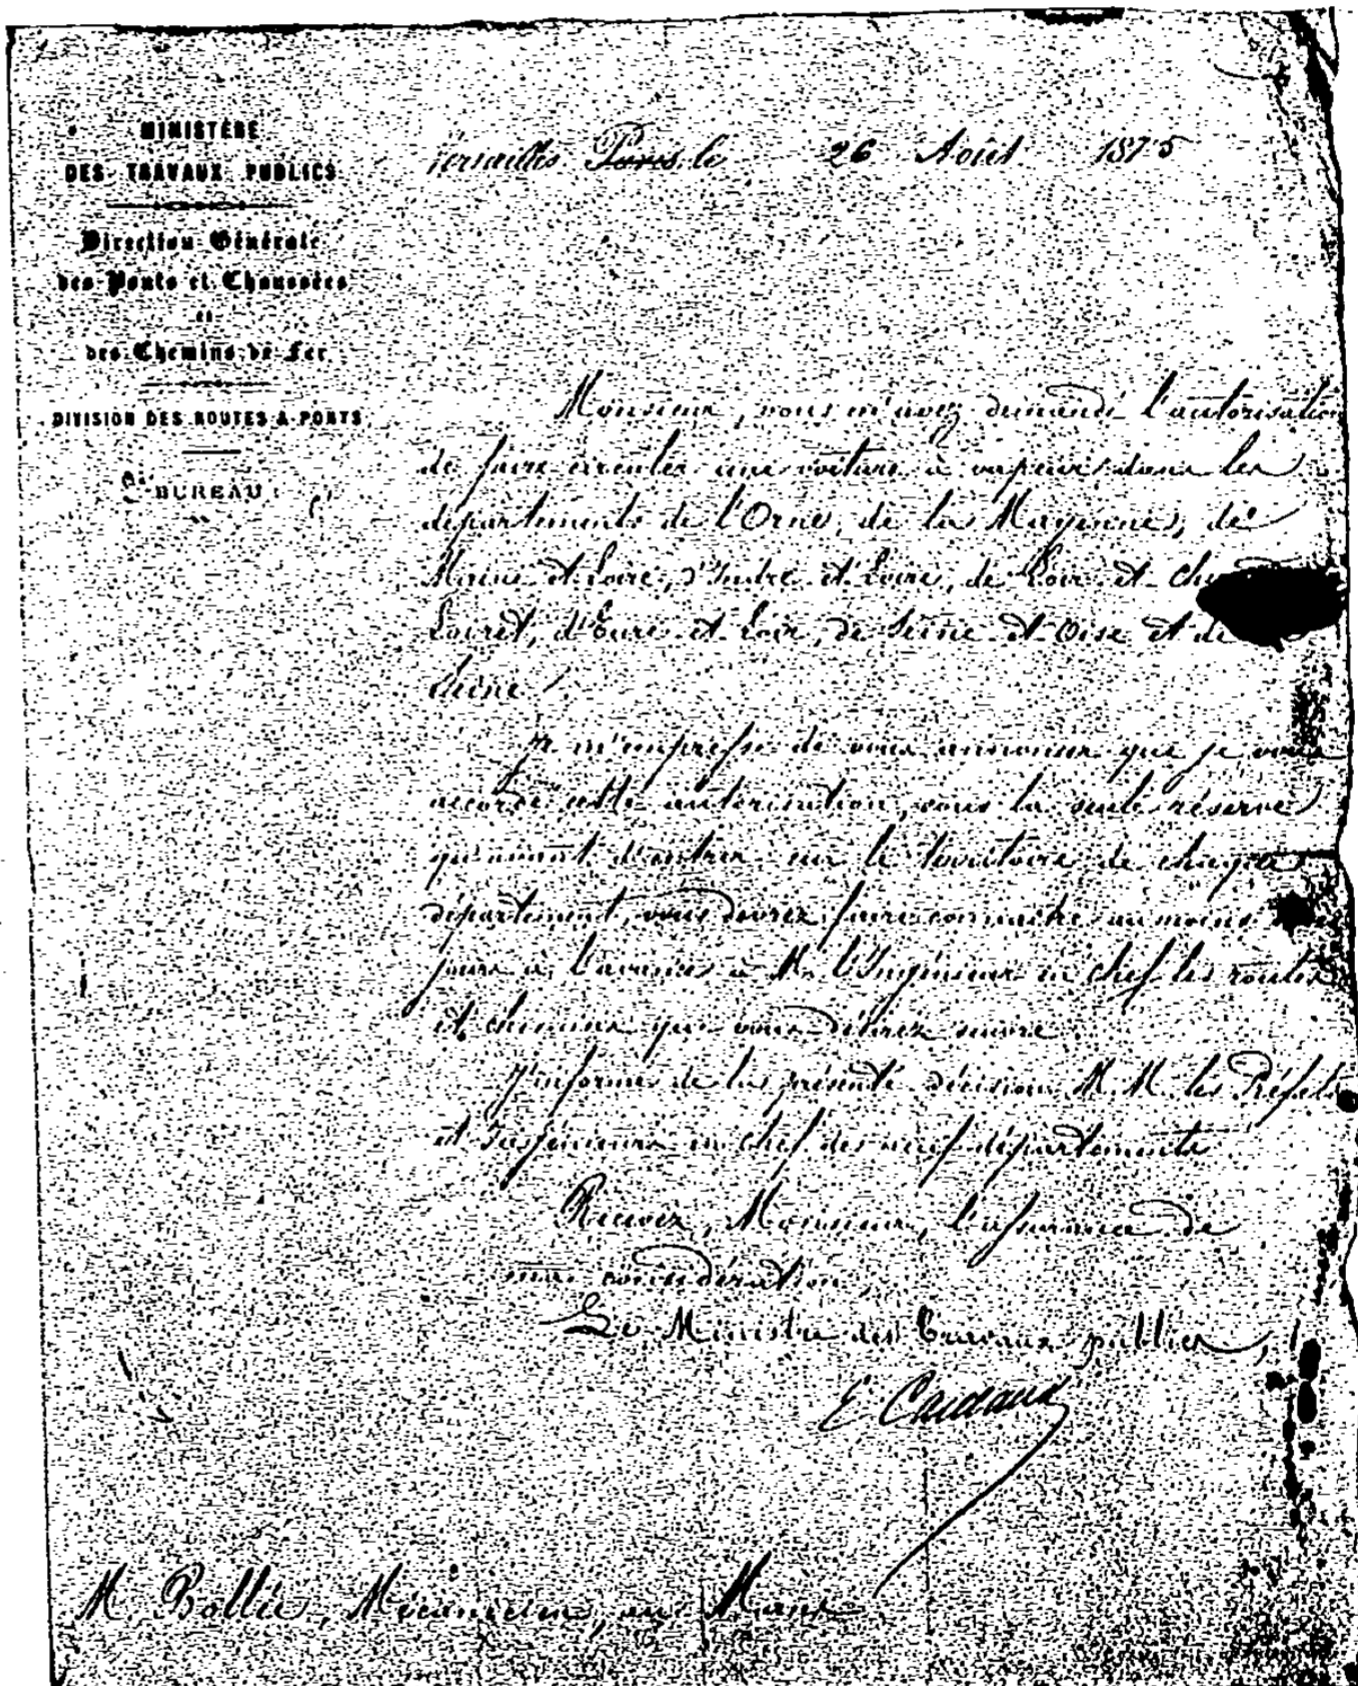 MINISTÈRE
DES TRAVAUX PUBLICS
Direction Générale
des Ponts et Chaussées
et
des Chemins de Fer
DIVISION DES ROUTES & PONTS
BUREAU
Versailles Paris, le 26 Août 1875
Monsieur, vous m'avez demandé l'autorisation
de faire circuler une voiture à vapeur dans les
départements de l'Orne, de la Mayenne, de
Maine et Loire, d'Indre et Loire, de Loir et Cher
Loiret, d'Eure et Loir, de Seine et Oise et de
Seine.
Je m'empresse de vous annoncer que je vous
accorde cette autorisation sous la seule réserve
qu'avant d'entrer sur le territoire de chaque
département, vous devrez faire connaître au moins
jours à l'avance à M. l'Ingénieur en chef les routes
et chemins que vous devrez suivre.
J'informe de la présente décision M.M. les Préfets
et Ingénieurs en chef des neuf départements.
Recevez, Monsieur, l'assurance de
ma considération.
Le Ministre des Travaux publics,
E Caillaux
M. Bollée, Mécanicien, au Mans